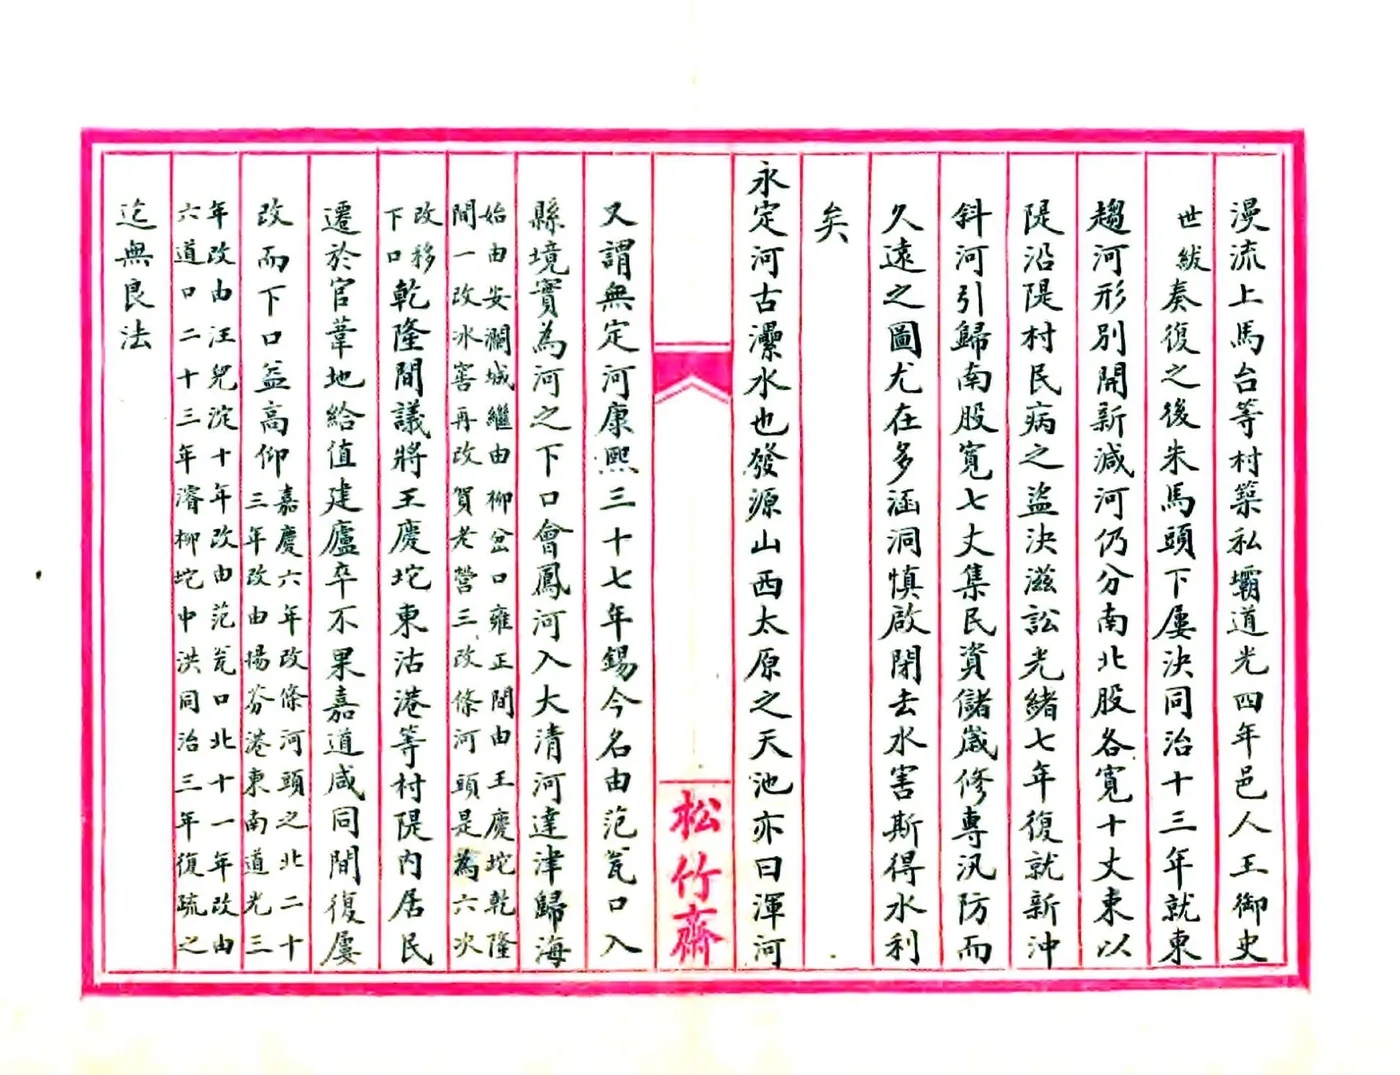 漫流上馬台等村築私壩道光四年邑人王御史
世紱奏復之後朱馬頭下屢決同治十三年就東
趨河形別開新減河仍分南北股各寬十丈東以
隄沿隄村民病之盜決滋訟光緒七年復就新沖
斜河引歸南股寬七丈集民資儲歲修專汛防而
久遠之圖尤在多涵洞慎啟閉去水害斯得水利
矣
永定河古灅水也發源山西太原之天池亦曰渾河
松竹齋
又謂無定河康熙三十七年錫今名由范瓮口入
縣境實為河之下口會鳳河入大清河達津歸海
始由安瀾城繼由柳岔口雍正間由王慶坨乾隆
間一改冰窖再改賀老營三改條河頭是為六次
改移
下口乾隆間議將王慶坨東沽港等村隄內居民
遷於官葦地給值建廬卒不果嘉道咸同間復屢
改而下口益高仰嘉慶六年改條河頭之北二十
三年改由揚芬港東南道光三
年改由汪兒淀十年改由范瓮口北十一年改由
六道口二十三年濬柳坨中洪同治三年復疏之
迄無良法